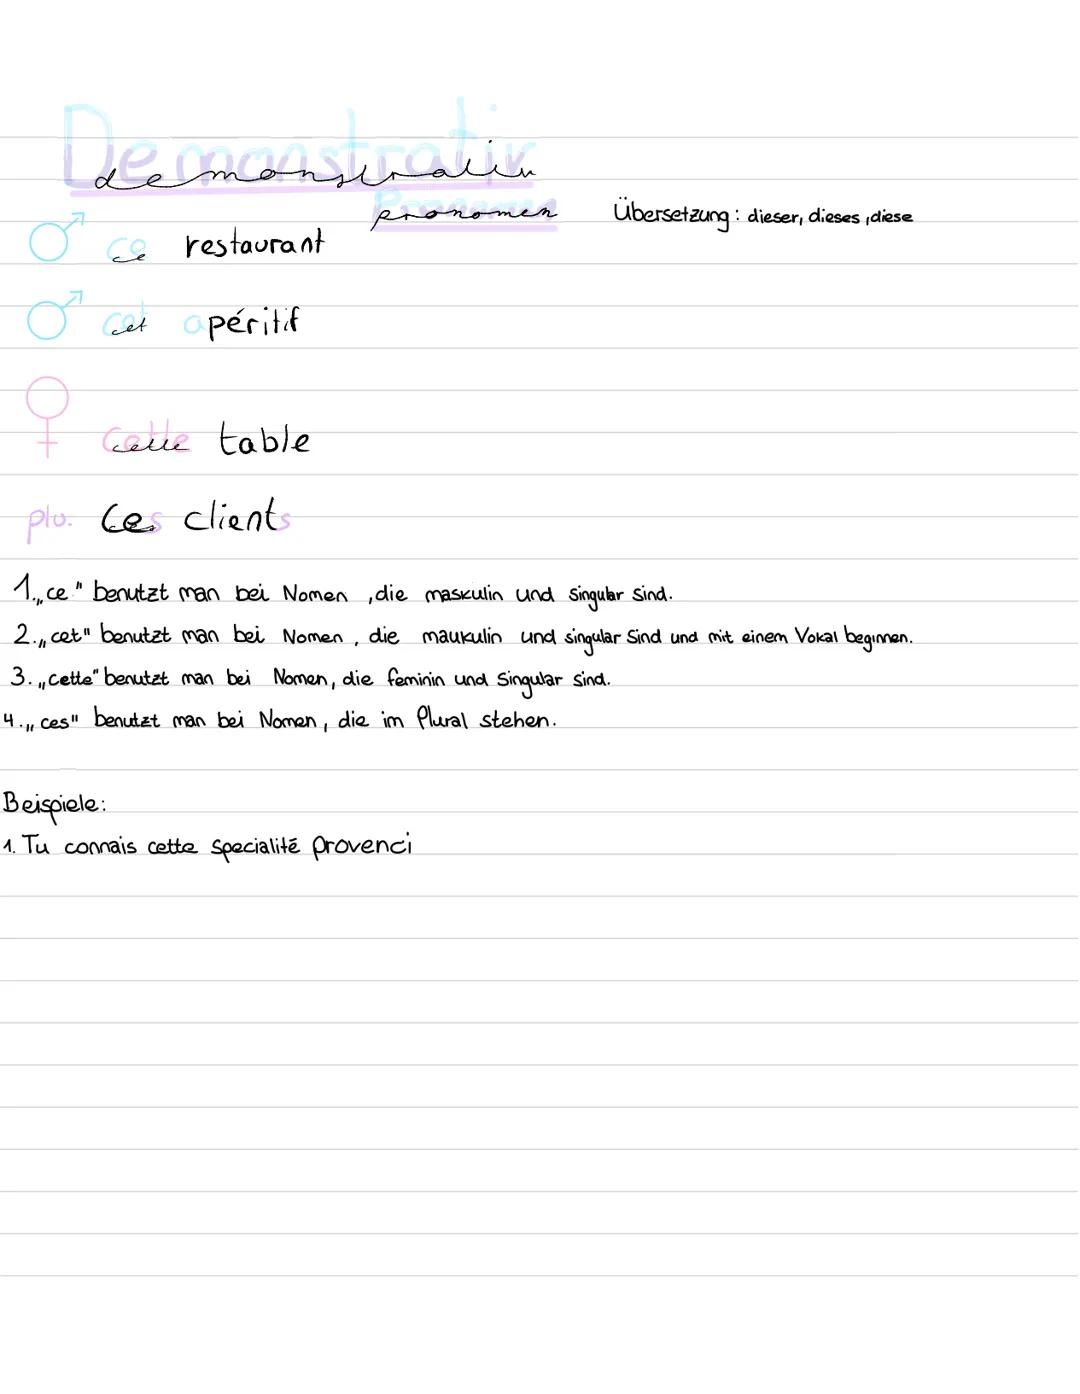 Demonstrativ
demonstrativ
Pronomen
pronomen Übersetzung: dieser, dieses, diese
ce restaurant
cet apéritif
cette table
plu. Ces clients
1. „ce" benutzt man bei Nomen, die maskulin und singular sind.
2. „cet" benutzt man bei Nomen, die maukulin und singular sind und mit einem Vokal beginnen.
3. „cette" benutzt man bei Nomen, die feminin und Singular sind.
4. „ces" benutzt man bei Nomen, die im Plural stehen.
Beispiele:
1. Tu connais cette specialité provenci